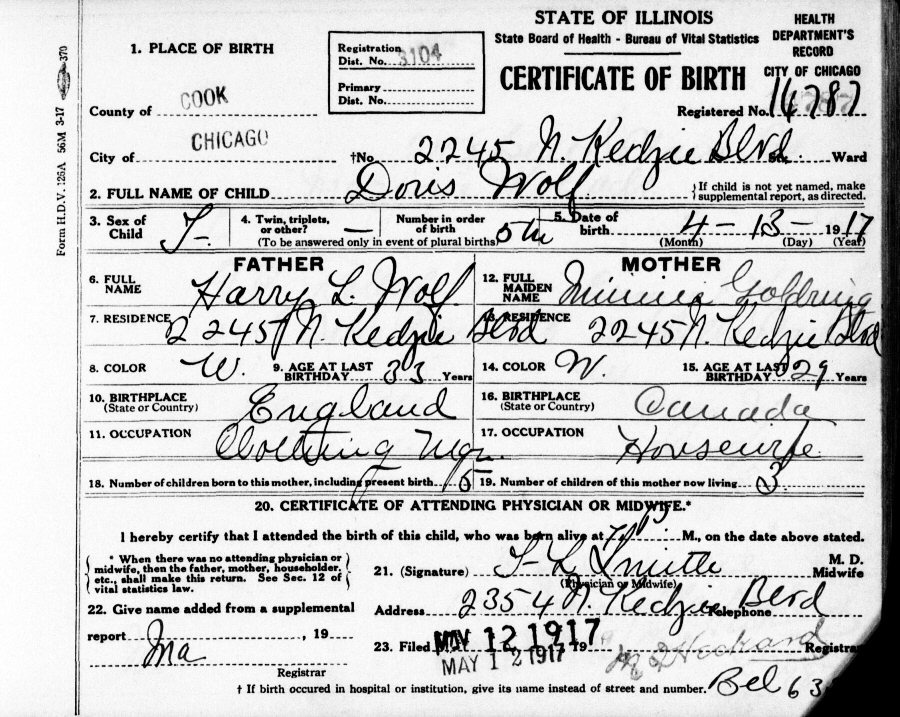 STATE OF ILLINOIS
State Board of Health - Bureau of Vital Statistics
CERTIFICATE OF BIRTH
HEALTH
DEPARTMENT'S
RECORD
CITY OF CHICAGO
Registered No. 14787
1. PLACE OF BIRTH
Registration
Dist. No. 3104
Primary
Dist. No.
County of COOK
City of CHICAGO †No 2245 N. Kedzie Blvd St. Ward
2. FULL NAME OF CHILD Doris Wolf { If child is not yet named, make
supplemental report, as directed.
3. Sex of
Child F-
4. Twin, triplets,
or other? —
Number in order
of birth 5th
(To be answered only in event of plural births)
5. Date of
birth 4 - 13 - 1917
(Month) (Day) (Year)
FATHER
MOTHER
6. FULL
NAME Harry L. Wolf
12. FULL
MAIDEN
NAME Minnie Goldbring
7. RESIDENCE 2245 N. Kedzie Blvd
13. RESIDENCE 2245 N. Kedzie Blvd
8. COLOR W. 9. AGE AT LAST
BIRTHDAY 33 Years
14. COLOR W. 15. AGE AT LAST
BIRTHDAY 29 Years
10. BIRTHPLACE
(State or Country) England
16. BIRTHPLACE
(State or Country) Canada
11. OCCUPATION Clothing Mgr.
17. OCCUPATION Housewife
18. Number of children born to this mother, including present birth 5 19. Number of children of this mother now living 3
20. CERTIFICATE OF ATTENDING PHYSICIAN OR MIDWIFE.*
I hereby certify that I attended the birth of this child, who was born alive at M., on the date above stated.
* When there was no attending physician or
midwife, then the father, mother, householder,
etc., shall make this return. See Sec. 12 of
vital statistics law.
21. (Signature) M. D.
(Physician or Midwife) Midwife
22. Give name added from a supplemental
report , 19
Registrar
Address 2354 N. Kedzie Blvd Telephone
23. Filed MAY 12 1917 19
MAY 12 1917
Registrar
† If birth occured in hospital or institution, give its name instead of street and number. Bel 63
Form H.D.V. 126A 56M 3-17 370